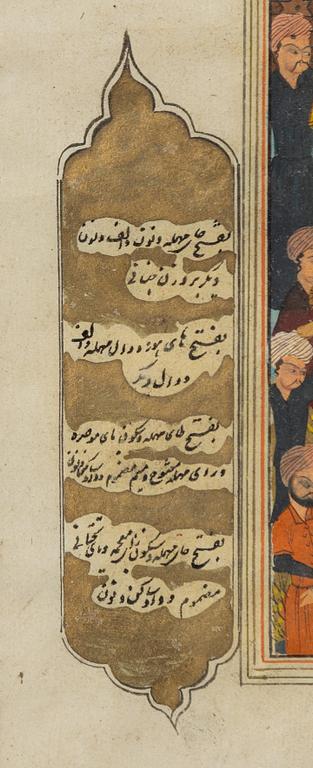 بفتح حای مهمله و نون و الف و نون
دیگر بر وزن جنانی
بفتح های هوز و دال مهمله و الف
و دال دیگر
بفتح طای مهمله و سکون بای موحده
و رای مهمله مفتوح و میم مضموم و واو ساکن و نون
بفتح حای مهمله و سکون زای معجمه و یای تحتانی
مضموم و واو ساکن و نون